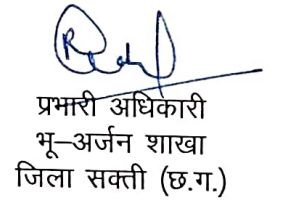 प्रभारी अधिकारी
भू–अर्जन शाखा
जिला सक्ती (छ.ग.)